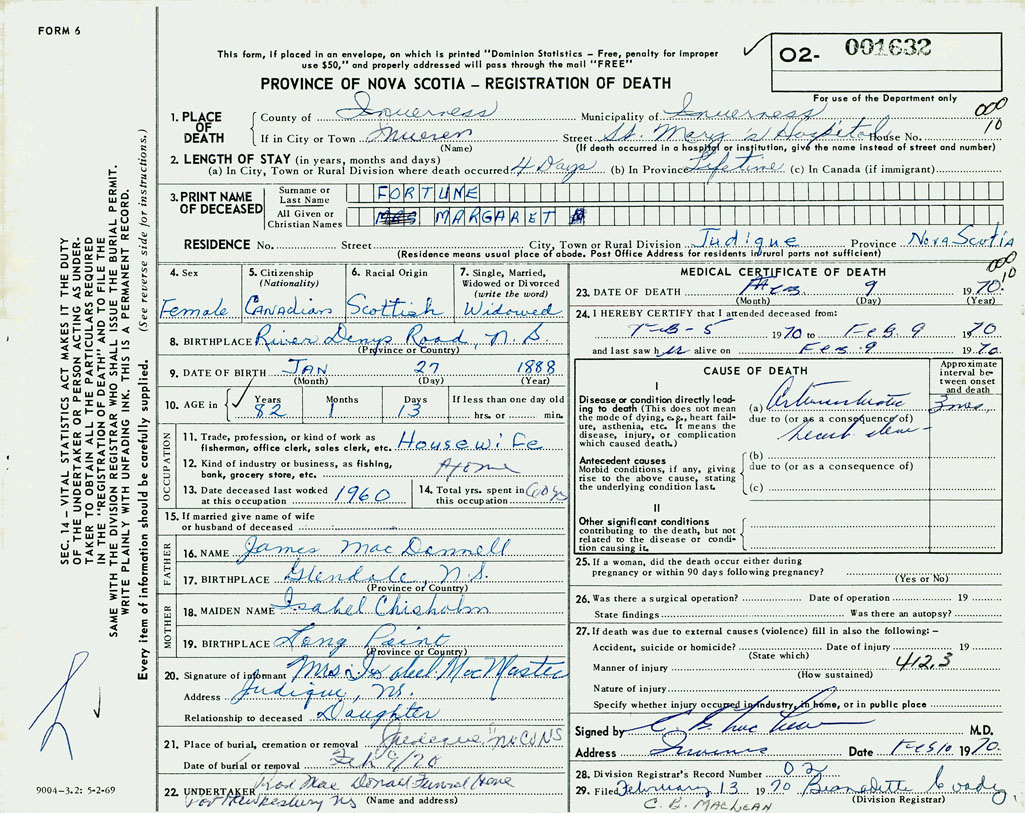 FORM 6
This form, if placed in an envelope, on which is printed "Dominion Statistics – Free, penalty for improper
use $50," and properly addressed will pass through the mail "FREE"
PROVINCE OF NOVA SCOTIA – REGISTRATION OF DEATH
O2- 001632
For use of the Department only
000
10
SEC. 14 – VITAL STATISTICS ACT MAKES IT THE DUTY
OF THE UNDERTAKER OR PERSON ACTING AS UNDER-
TAKER TO OBTAIN ALL THE PARTICULARS REQUIRED
IN THE "REGISTRATION OF DEATH" AND TO FILE THE
SAME WITH THE DIVISION REGISTRAR WHO SHALL ISSUE THE BURIAL PERMIT.
WRITE PLAINLY WITH UNFADING INK. THIS IS A PERMANENT RECORD.
Every item of information should be carefully supplied. (See reverse side for instructions.)
1. PLACE OF DEATH
County of Inverness Municipality of Inverness
If in City or Town Street St. Mary's Hospital House No.
(Name) (If death occurred in a hospital or institution, give the name instead of street and number)
2. LENGTH OF STAY (in years, months and days)
(a) In City, Town or Rural Division where death occurred 4 Days (b) In Province Lifetime (c) In Canada (if immigrant)
3. PRINT NAME OF DECEASED
Surname or Last Name FORTUNE
All Given or Christian Names MARGARET
RESIDENCE No. Street City, Town or Rural Division Judique Province Nova Scotia
(Residence means usual place of abode. Post Office Address for residents in rural parts not sufficient)
4. Sex 5. Citizenship (Nationality) 6. Racial Origin 7. Single, Married, Widowed or Divorced (write the word)
Female Canadian Scottish Widowed
8. BIRTHPLACE River Denys Road, N.S
(Province or Country)
9. DATE OF BIRTH JAN 27 1888
(Month) (Day) (Year)
10. AGE in Years Months Days If less than one day old
82 1 13 hrs. or min.
OCCUPATION
11. Trade, profession, or kind of work as
fisherman, office clerk, sales clerk, etc. Housewife
12. Kind of industry or business, as fishing,
bank, grocery store, etc. Home
13. Date deceased last worked
at this occupation 1960
14. Total yrs. spent in
this occupation 60 yr
15. If married give name of wife
or husband of deceased
FATHER
16. NAME James MacDonnell
17. BIRTHPLACE Glendale, N.S.
(Province or Country)
MOTHER
18. MAIDEN NAME Isabel Chisholm
19. BIRTHPLACE Long Point
(Province or Country)
20. Signature of informant Mrs. Isabel MacMaster
Address Judique, NS.
Relationship to deceased Daughter
21. Place of burial, cremation or removal Judique
Date of burial or removal Feb 9/70
22. UNDERTAKER Rod Mac Donald Funeral Home
Port Hawkesbury NS (Name and address)
9004-3.2: 5-2-69
MEDICAL CERTIFICATE OF DEATH
000
10
23. DATE OF DEATH Feb 9 1970.
(Month) (Day) (Year)
24. I HEREBY CERTIFY that I attended deceased from:
Feb-5 1970 to Feb. 9 1970
and last saw her alive on Feb. 9 1970.
CAUSE OF DEATH
Approximate interval between onset and death
I
Disease or condition directly lead-
ing to death (This does not mean
the mode of dying, e.g., heart fail-
ure, asthenia, etc. It means the
disease, injury, or complication
which caused death.)
(a)
due to (or as a consequence of)
heart
Antecedent causes
Morbid conditions, if any, giving
rise to the above cause, stating
the underlying condition last.
(b)
due to (or as a consequence of)
(c)
II
Other significant conditions
contributing to the death, but not
related to the disease or condi-
tion causing it.
25. If a woman, did the death occur either during
pregnancy or within 90 days following pregnancy?
(Yes or No)
26. Was there a surgical operation? Date of operation 19
State findings Was there an autopsy?
27. If death was due to external causes (violence) fill in also the following: –
Accident, suicide or homicide? Date of injury 19
(State which)
Manner of injury 412.3
(How sustained)
Nature of injury
Specify whether injury occurred in industry, in home, or in public place
Signed by M.D.
Address Inverness Date Feb 10 1970.
28. Division Registrar's Record Number 02
29. Filed February 13 1970 Bernadette Coady
C. B. MACLEAN (Division Registrar)